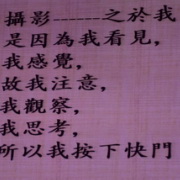 攝影------之於我
是因為我看見,
我感覺,
故我注意,
我觀察,
我思考,
所以我按下快門